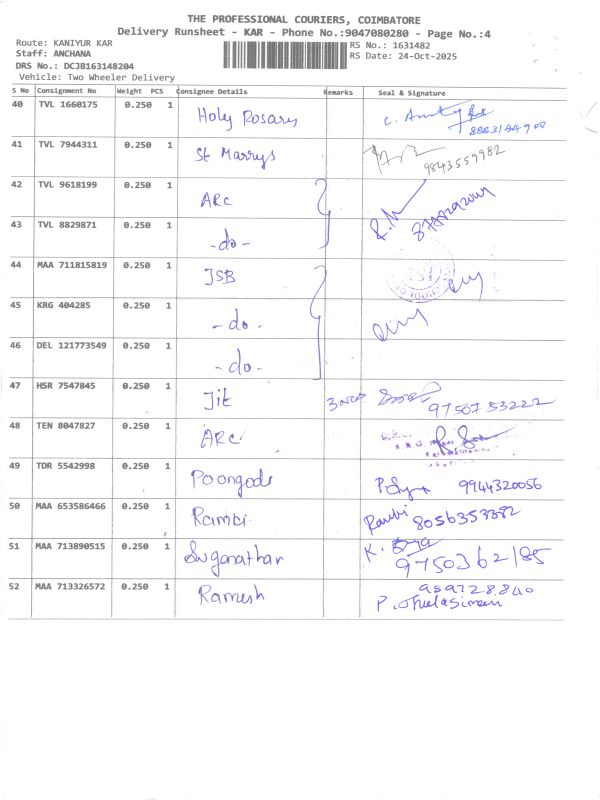 THE PROFESSIONAL COURIERS, COIMBATORE
Delivery Runsheet - KAR - Phone No.:9047080280 - Page No.:4
Route: KANIYUR KAR
RS No.: 1631482
Staff: ANCHANA
RS Date: 24-Oct-2025
DRS No.: DCJB163148204
Vehicle: Two Wheeler Delivery
S No Consignment No Weight PCS Consignee Details Remarks Seal & Signature
40 TVL 1660175 0.250 1 Holy Rosary
41 TVL 7944311 0.250 1 St Marrys 9843559982
42 TVL 9618199 0.250 1 ARC
43 TVL 8829871 0.250 1 -do-
44 MAA 711815819 0.250 1 JSB
45 KRG 404285 0.250 1 -do-
46 DEL 121773549 0.250 1 -do-
47 HSR 7547845 0.250 1 Jit 97507 53222
48 TEN 8047827 0.250 1 ARC
49 TDR 5542998 0.250 1 Poongodi 9944320056
50 MAA 653586466 0.250 1 Rambi Rambi 8056353382
51 MAA 713890515 0.250 1 Suganathar 9750362185
52 MAA 713326572 0.250 1 Ramesh